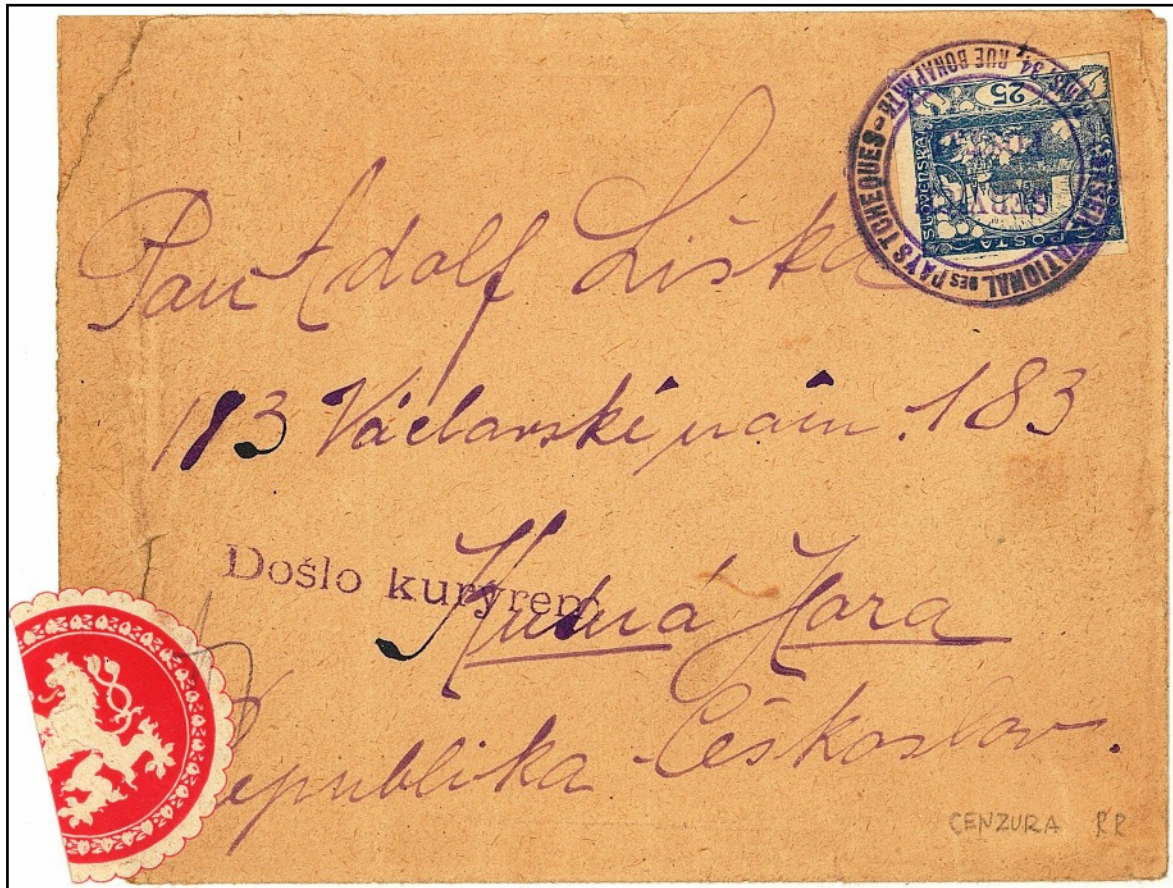 CONSEIL NATIONAL DES PAYS TCHEQUES
PARIS 34, RUE BONAPARTE
25
SLOVENSKÁ
POSTA
Pan Adolf Liška
183 Václavské nám. 183
Došlo kurýrem
Kutná Hora
Republika Českoslov.
CENZURA RR